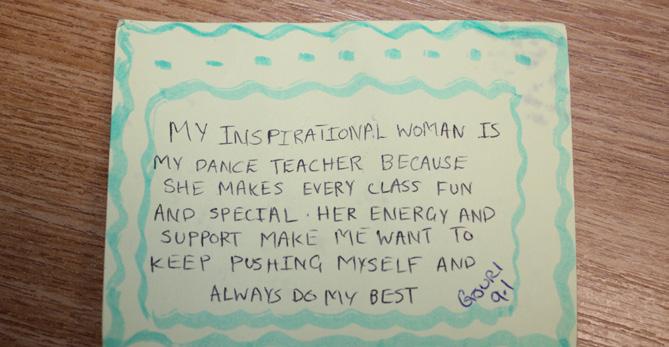 MY INSPIRATIONAL WOMAN IS
MY DANCE TEACHER BECAUSE
SHE MAKES EVERY CLASS FUN
AND SPECIAL. HER ENERGY AND
SUPPORT MAKE ME WANT TO
KEEP PUSHING MYSELF AND
ALWAYS DO MY BEST
GOURI
9.1